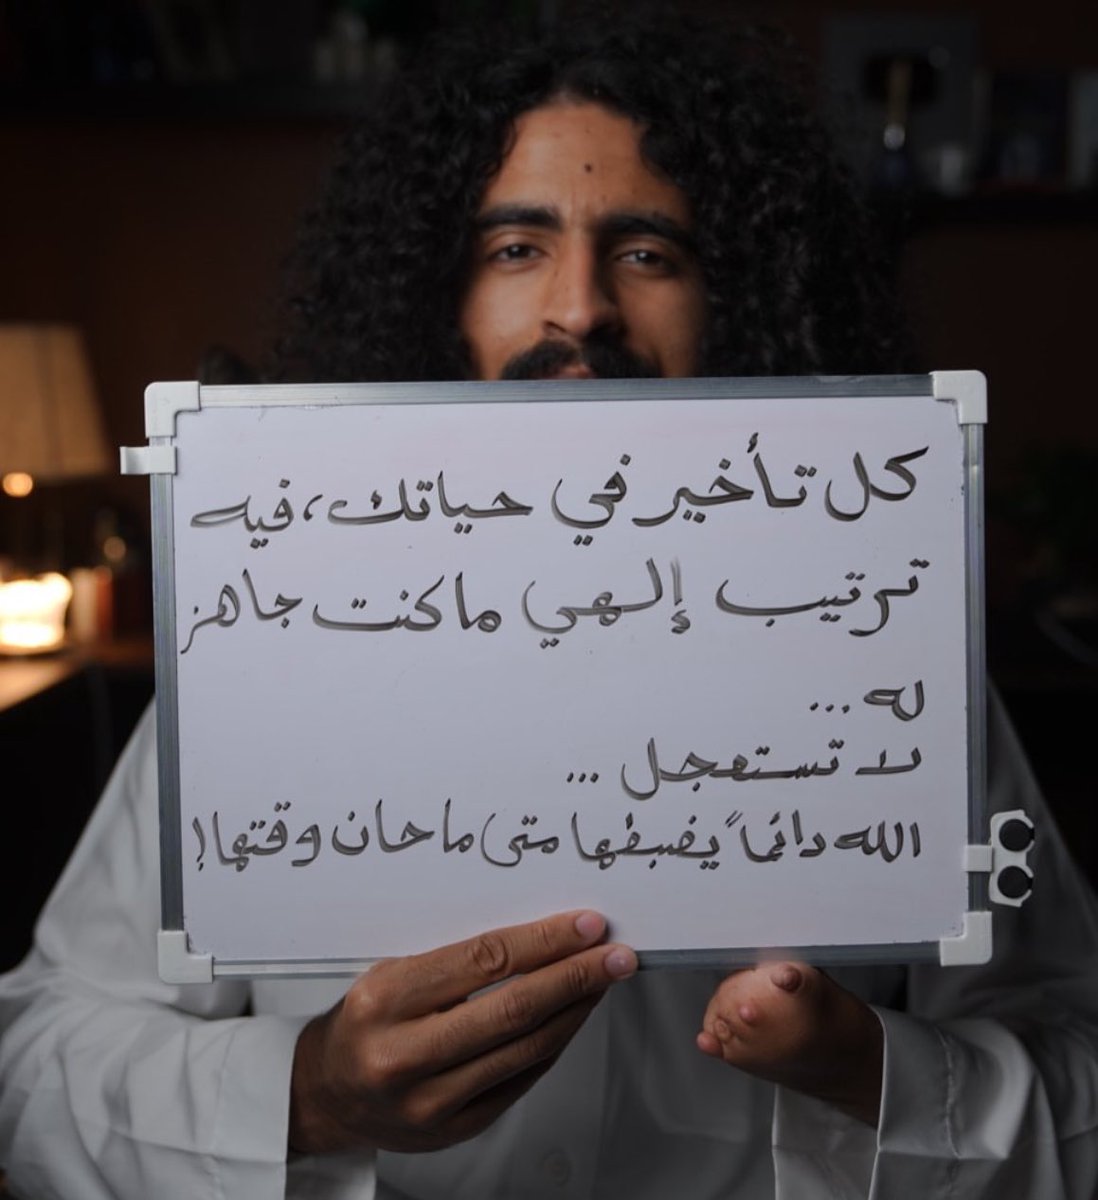 كل تأخير في حياتك، فيه
ترتيب إلهي ما كنت جاهز
له ...
لا تستعجل ...
الله دائماً يضبطها متى ما حان وقتها!